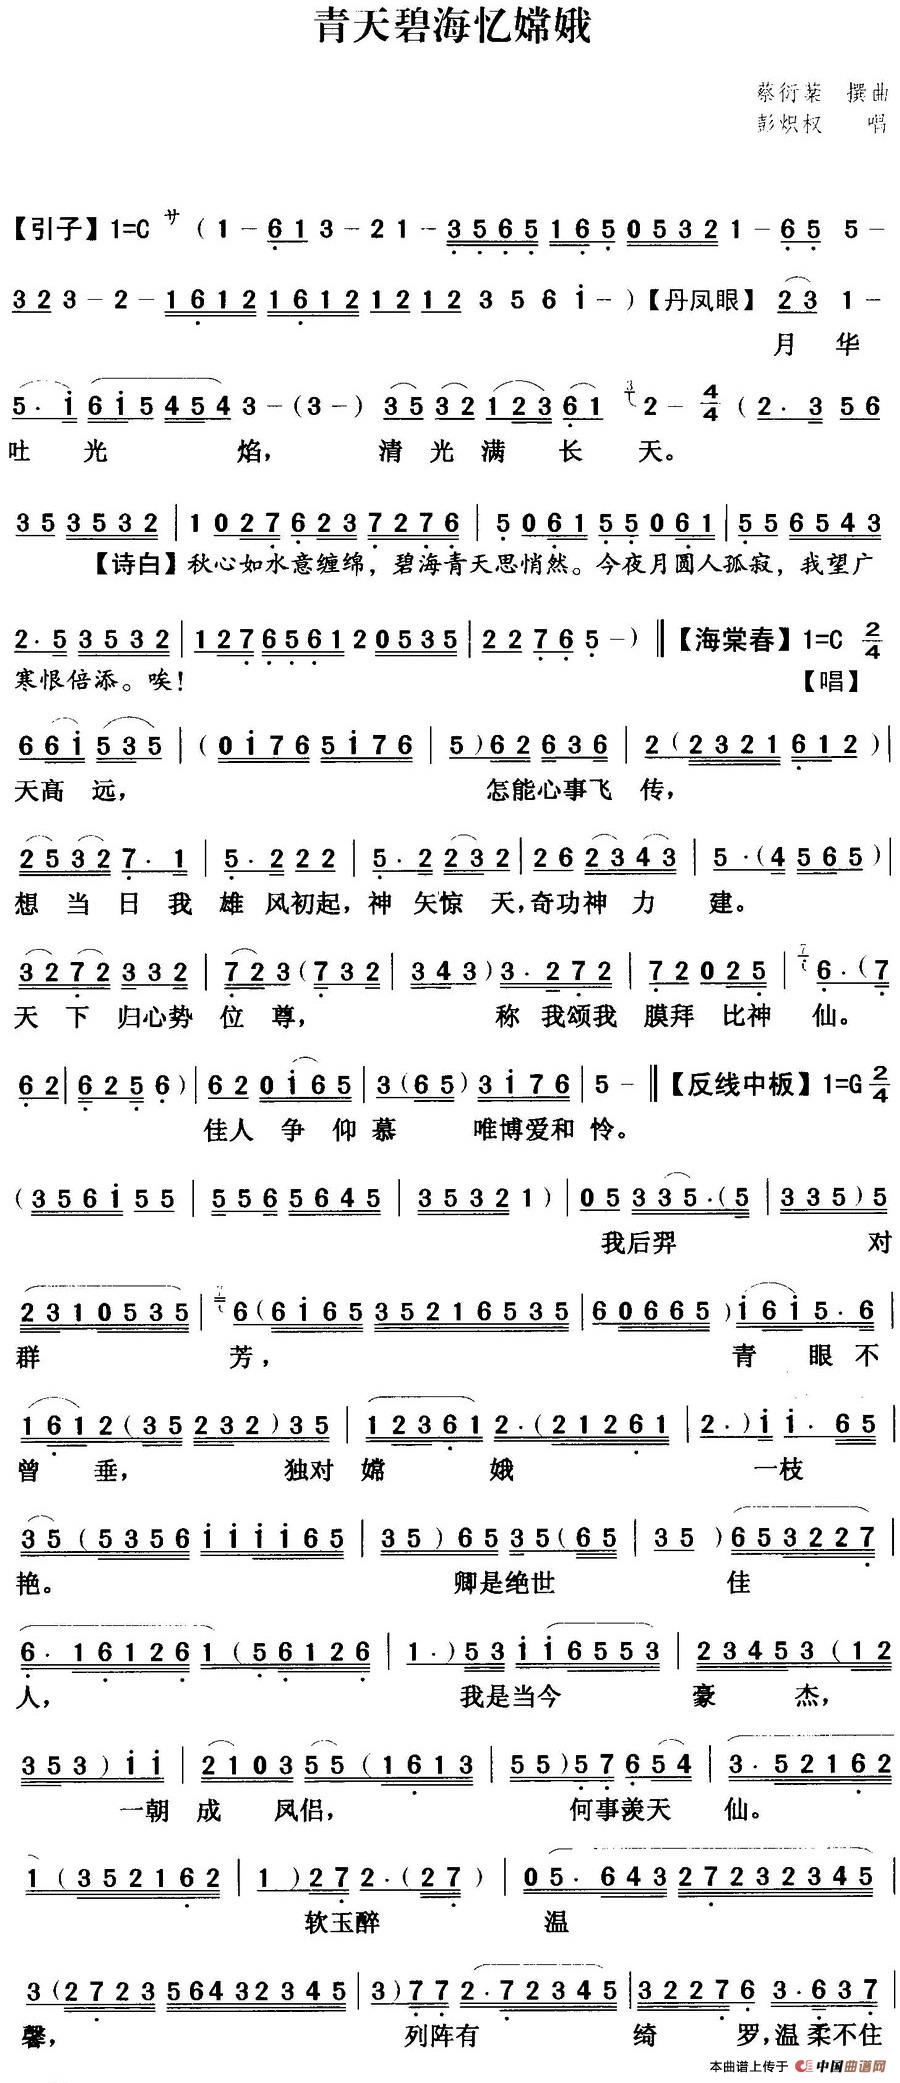 青天碧海忆嫦娥
蔡衍棻 撰曲
彭炽权 唱
【引子】1=C サ (1 - 6 1 3 - 2 1 - 3 5 6 5 1 6 5 0 5 3 2 1 - 6 5 5 -
3 2 3 - 2 - 1 6 1 2 1 6 1 2 1 2 1 2 3 5 6 i - )【丹凤眼】2 3 1 -
月 华
5 . i 6 i 5 4 5 4 3 - ( 3 - ) 3 5 3 2 1 2 3 6 1 2 - 4/4 ( 2 . 3 5 6
吐 光 焰， 清 光 满 长 天。
3 5 3 5 3 2 | 1 0 2 7 6 2 3 7 2 7 6 | 5 0 6 1 5 5 0 6 1 | 5 5 6 5 4 3
【诗白】秋心如水意缠绵，碧海青天思悄然。今夜月圆人孤寂，我望广
2 . 5 3 5 3 2 | 1 2 7 6 5 6 1 2 0 5 3 5 | 2 2 7 6 5 - ) ‖【海棠春】1=C 2/4
寒恨倍添。唉！ 【唱】
6 6 i 5 3 5 | ( 0 i 7 6 5 i 7 6 | 5 ) 6 2 6 3 6 | 2 ( 2 3 2 1 6 1 2 ) |
天高 远， 怎能心事飞 传，
2 5 3 2 7 . 1 | 5 . 2 2 2 | 5 . 2 2 3 2 | 2 6 2 3 4 3 | 5 . ( 4 5 6 5 ) |
想 当 日 我 雄 风初起，神 矢惊 天，奇功神 力 建。
3 2 7 2 3 3 2 | 7 2 3 ( 7 3 2 | 3 4 3 ) 3 . 2 7 2 | 7 2 0 2 5 | 6 . ( 7
天 下 归心势 位 尊， 称 我颂我 膜拜 比神 仙。
6 2 | 6 2 5 6 ) | 6 2 0 i 6 5 | 3 ( 6 5 ) 3 i 7 6 | 5 - ‖【反线中板】1=G 2/4
佳人 争 仰 慕 唯博爱和 怜。
( 3 5 6 i 5 5 | 5 5 6 5 6 4 5 | 3 5 3 2 1 ) | 0 5 3 3 5 . ( 5 | 3 3 5 ) 5
我后羿 对
2 3 1 0 5 3 5 | 6 ( 6 i 6 5 3 5 2 1 6 5 3 5 | 6 0 6 6 5 ) i 6 i 5 . 6 |
群 芳， 青 眼 不
1 6 1 2 ( 3 5 2 3 2 ) 3 5 | 1 2 3 6 1 2 . ( 2 1 2 6 1 | 2 . ) i i . 6 5 |
曾 垂， 独对 嫦 娥 一枝
3 5 ( 5 3 5 6 i i i i 6 5 | 3 5 ) 6 5 3 5 ( 6 5 | 3 5 ) 6 5 3 2 2 7 |
艳。 卿是绝世 佳
6 . 1 6 1 2 6 1 ( 5 6 1 2 6 | 1 . ) 5 3 i i 6 5 5 3 | 2 3 4 5 3 ( 1 2
人， 我是当今 豪 杰，
3 5 3 ) i i | 2 1 0 3 5 5 ( 1 6 1 3 | 5 5 ) 5 7 6 5 4 | 3 . 5 2 1 6 2
一朝 成 凤侣， 何事羡天 仙。
1 ( 3 5 2 1 6 2 | 1 ) 2 7 2 . ( 2 7 ) | 0 5 . 6 4 3 2 7 2 3 2 3 4 5 |
软玉醉 温
3 ( 2 7 2 3 5 6 4 3 2 3 4 5 | 3 ) 7 7 2 . 7 2 3 4 5 | 3 2 2 7 6 3 . 6 3 7 |
馨， 列阵有 绮 罗，温 柔不住
本曲谱上传于 中国曲谱网